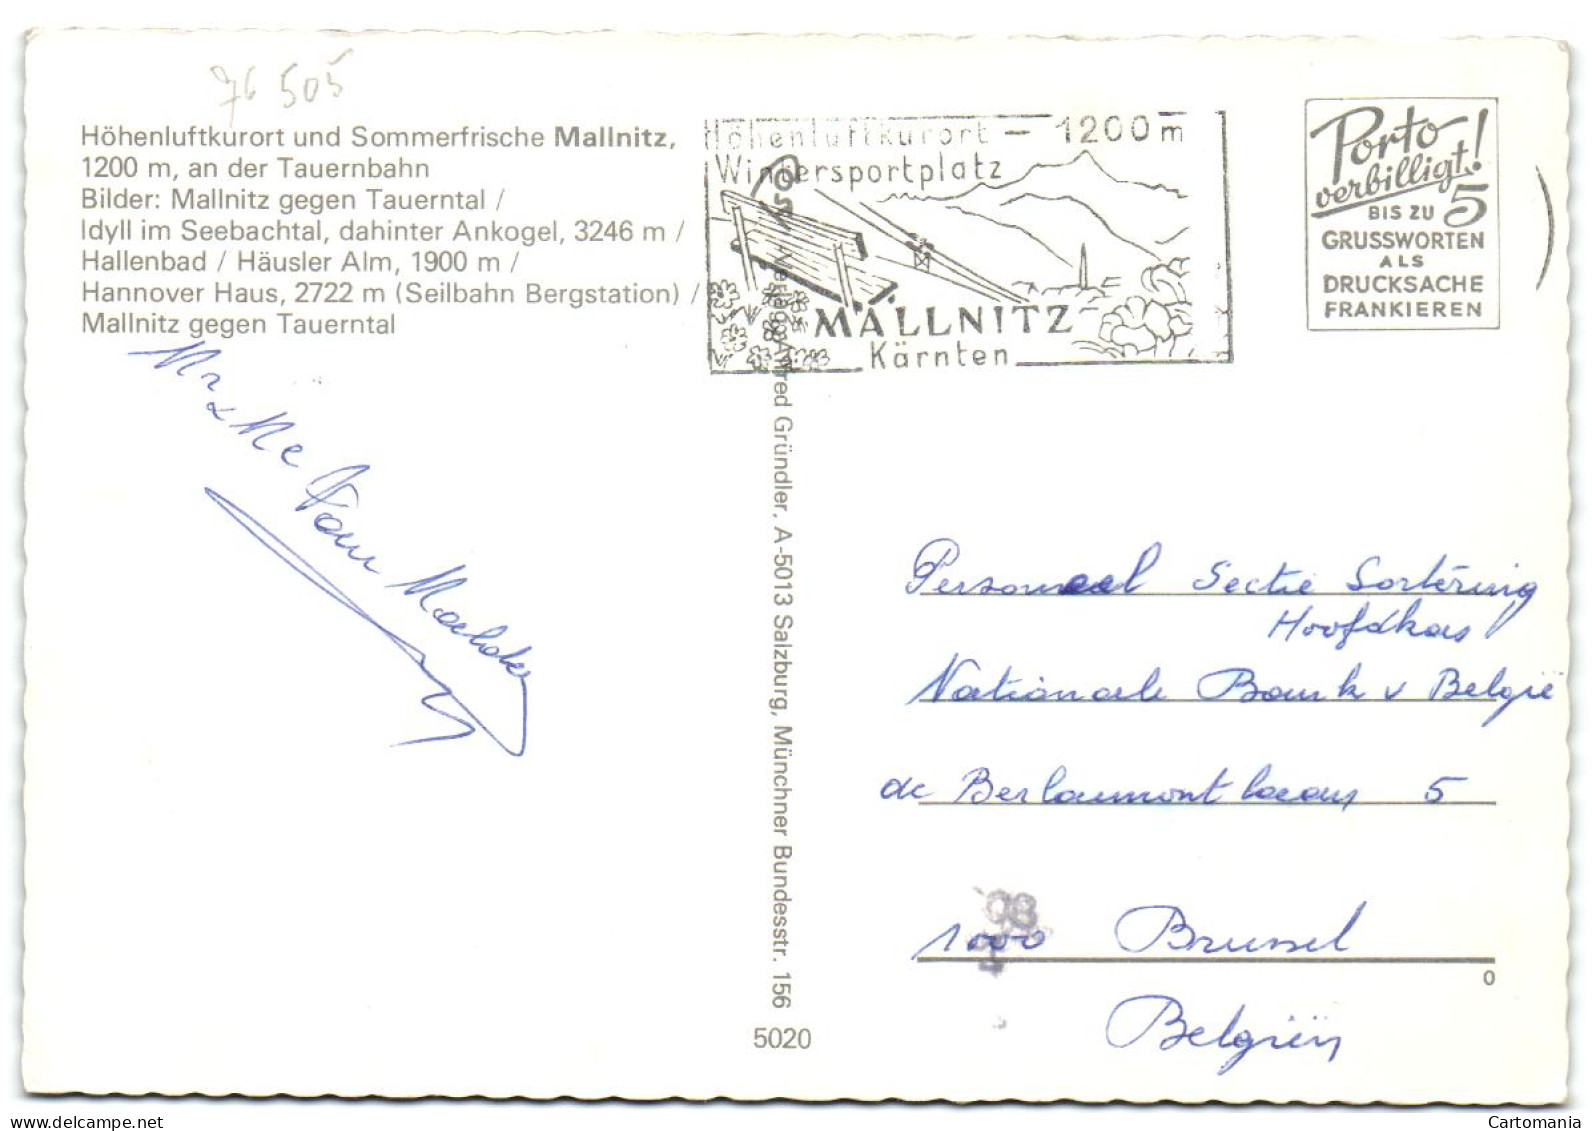 76 505
Höhenluftkurort und Sommerfrische Mallnitz,
1200 m, an der Tauernbahn
Bilder: Mallnitz gegen Tauerntal /
Idyll im Seebachtal, dahinter Ankogel, 3246 m /
Hallenbad / Häusler Alm, 1900 m /
Hannover Haus, 2722 m (Seilbahn Bergstation) /
Mallnitz gegen Tauerntal
Mr & Me Van Maelder
Höhenluftkurort – 1200 m
Wintersportplatz
MALLNITZ
Kärnten
Porto
verbilligt!
BIS ZU 5
GRUSSWORTEN
ALS
DRUCKSACHE
FRANKIEREN
Verlag Alfred Gründler, A-5013 Salzburg, Münchner Bundesstr. 156
5020
Personeel Sectie Sortering
Hoofdkas
Nationale Bank v België
de Berlaumontlaan 5
98
1000 Brussel
0
Belgiën
Cartomania